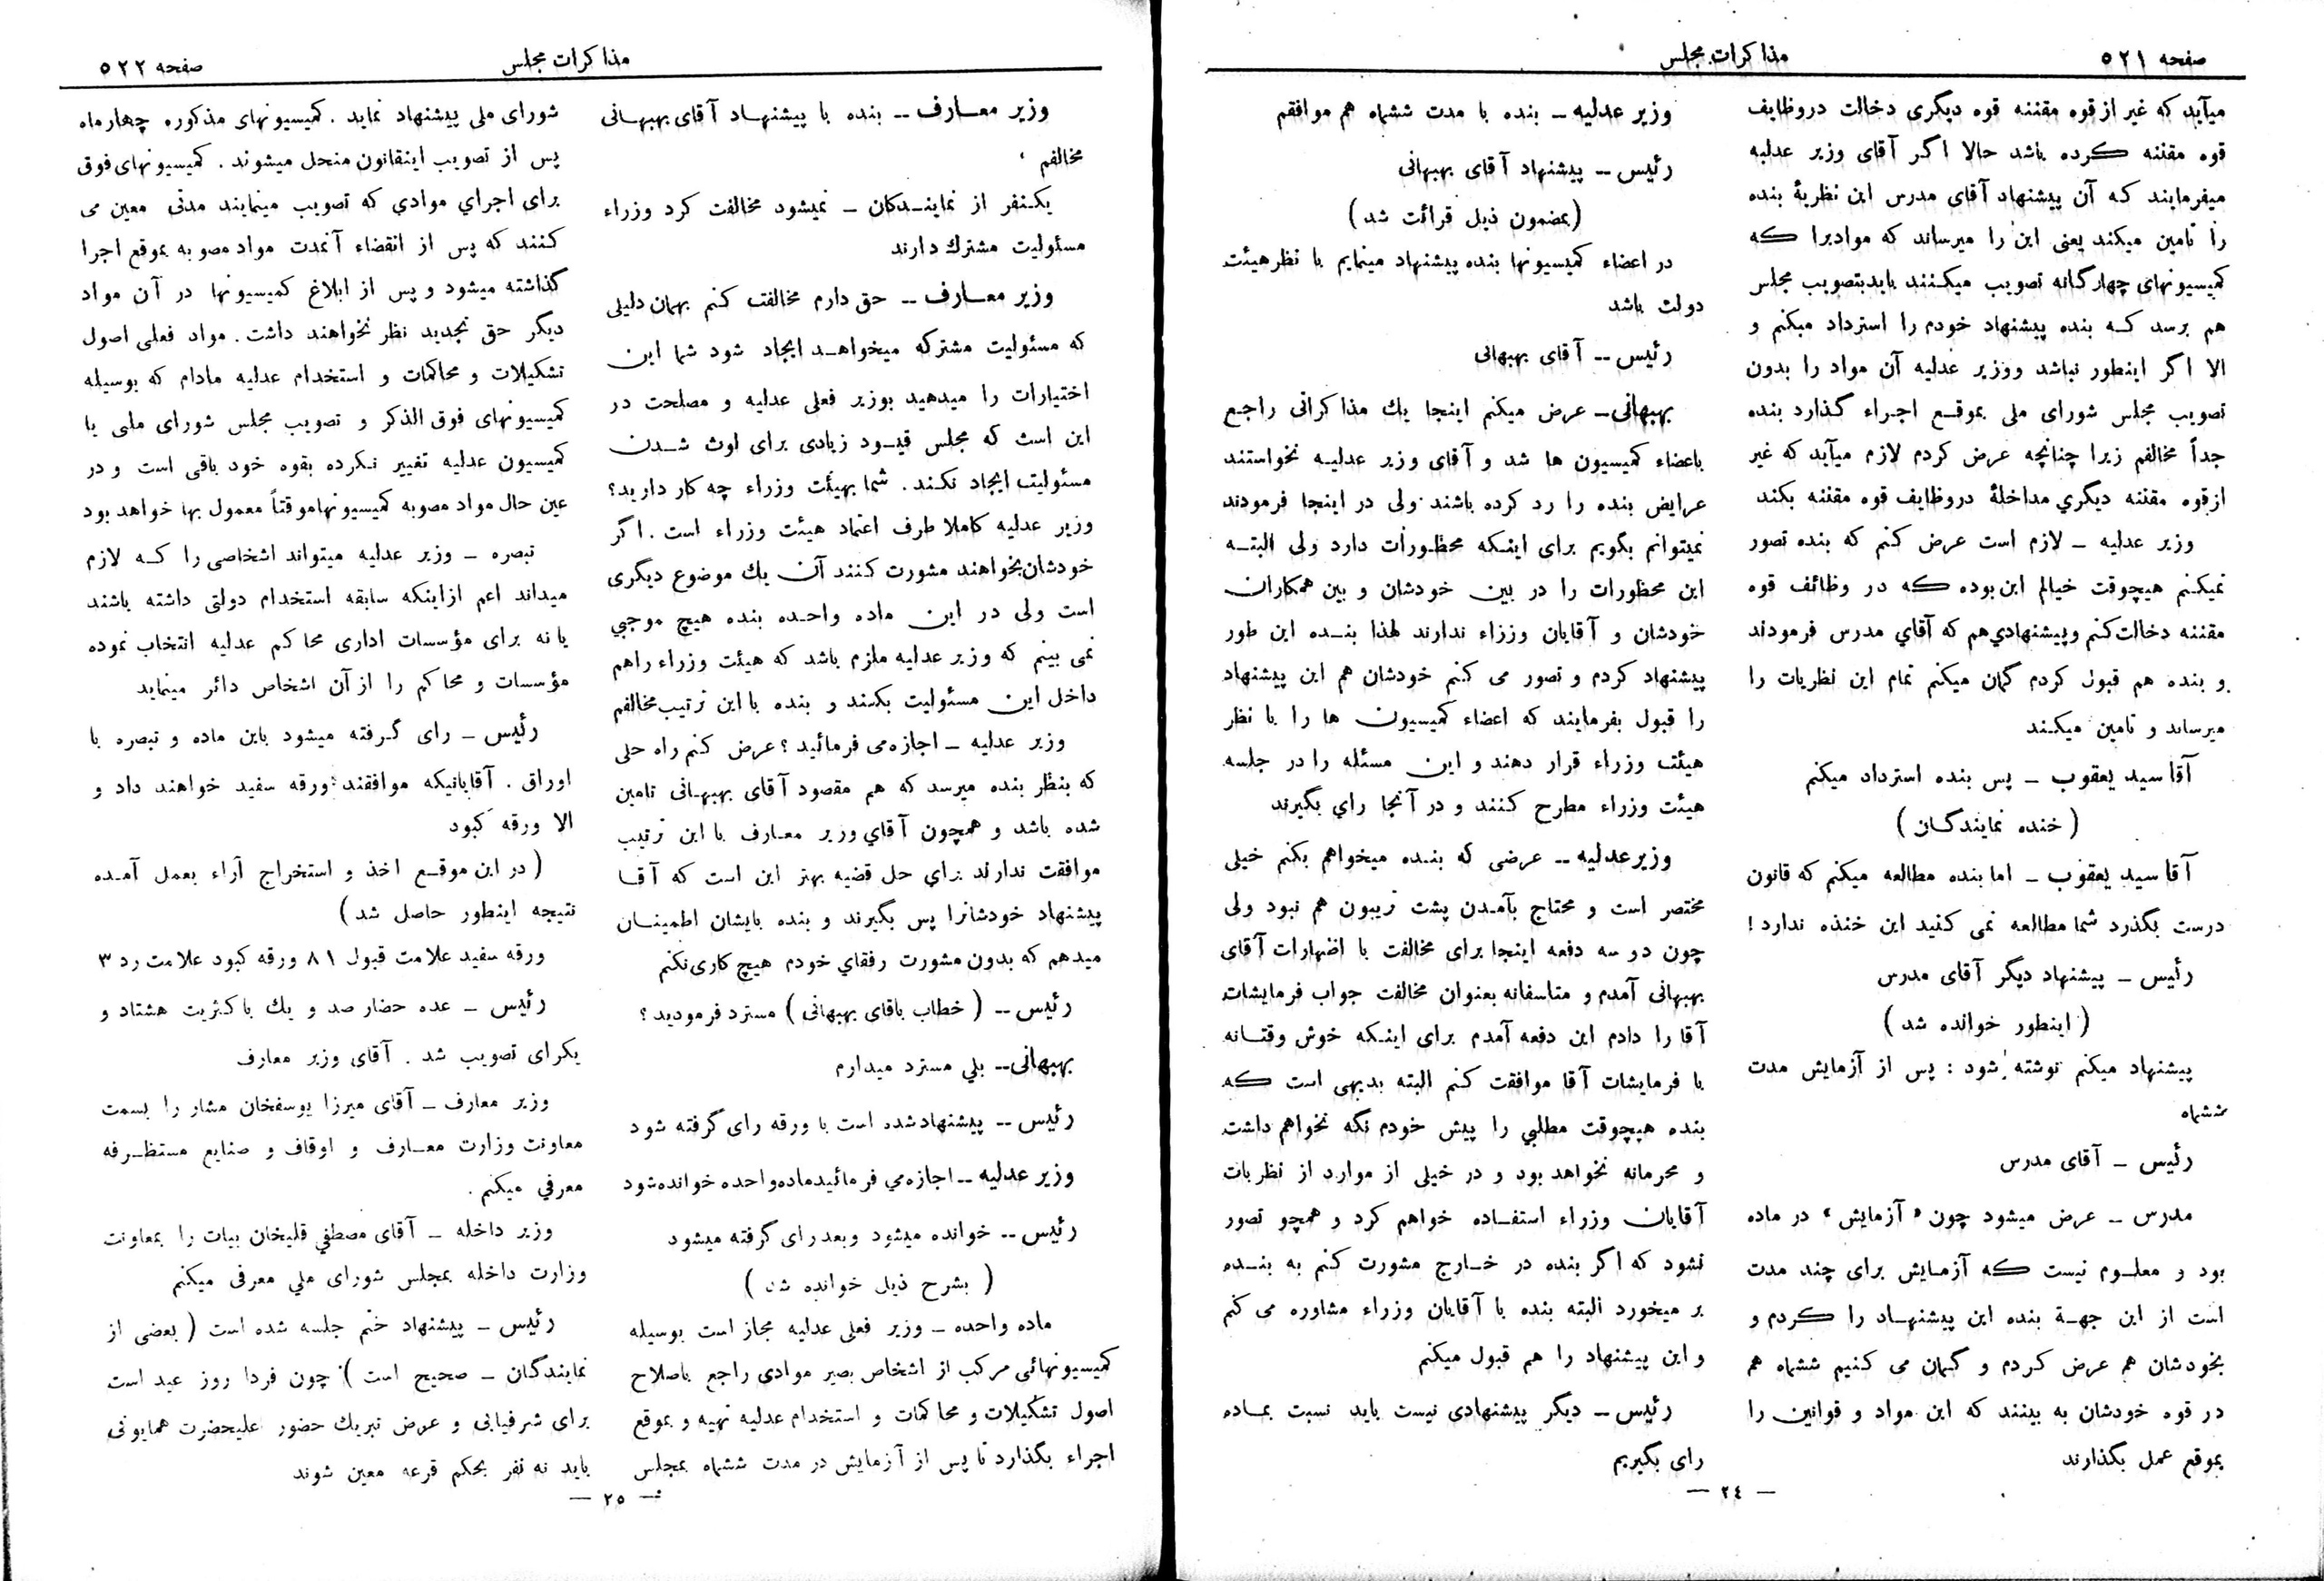 صفحه ٥٢١
مذاکرات مجلس
میآید که غیر از قوه مقننه قوه دیگری دخالت دروظایف
قوه مقننه کرده باشد حالا اگر آقای وزیر عدلیه
میفرمایند که آن پیشنهاد آقای مدرس این نظریهٔ بنده
را تامین میکند یعنی این را میرساند که موادیرا که
کمیسیونهای چهارگانه تصویب میکنند باید بتصویب مجلس
هم برسد که بنده پیشنهاد خودم را استرداد میکنم و
الا اگر اینطور نباشد ووزیر عدلیه آن مواد را بدون
تصویب مجلس شورای ملی بموقع اجراء گذارد بنده
جداً مخالفم زیرا چنانچه عرض کردم لازم میآید که غیر
ازقوه مقننه دیگري مداخلهٔ دروظایف قوه مقننه بکند
وزیر عدلیه ــ لازم است عرض کنم که بنده تصور
نمیکنم هیچوقت خیالم این بوده که در وظائف قوه
مقننه دخالت کنم وپیشنهادي هم که آقاي مدرس فرمودند
و بنده هم قبول کردم گمان میکنم تمام این نظریات را
میرساند و تامین میکند
آقا سید یعقوب ــ پس بنده استرداد میکنم
( خنده نمایندگان )
آقا سید یعقوب ــ اما بنده مطالعه میکنم که قانون
درست بگذرد شما مطالعه نمی کنید این خنده ندارد !
رئیس ــ پیشنهاد دیگر آقای مدرس
( اینطور خوانده شد )
پیشنهاد میکنم نوشته شود : پس از آزمایش مدت
ششماه
رئیس ــ آقای مدرس
مدرس ــ عرض میشود چون « آزمایش » در ماده
بود و معلوم نیست که آزمایش برای چند مدت
است از این جهة بنده این پیشنهاد را کردم و
بخودشان هم عرض کردم و گمان می کنیم ششماه هم
در قوه خودشان به بینند که این مواد و قوانین را
بموقع عمل بگذارند
وزیر عدلیه ــ بنده با مدت ششماه هم موافقم
رئیس ــ پیشنهاد آقای بهبهانی
(بمضمون ذیل قرائت شد )
در اعضاء کمیسیونها بنده پیشنهاد مینمایم با نظر هیئت
دولت باشد
رئیس ــ آقای بهبهانی
بهبهانی ــ عرض میکنم اینجا یك مذاکراتی راجع
باعضاء کمیسیون ها شد و آقای وزیر عدلیه نخواستند
عرایض بنده را رد کرده باشند ولی در اینجا فرمودند
نمیتوانم بگویم برای اینکه محظورات دارد ولی البته
این محظورات را در بین خودشان و بین همکاران
خودشان و آقایان وزراء ندارند لهذا بنده این طور
پیشنهاد کردم و تصور می کنم خودشان هم این پیشنهاد
را قبول بفرمایند که اعضاء کمیسیون ها را با نظر
هیئت وزراء قرار دهند و این مسئله را در جلسه
هیئت وزراء مطرح کنند و در آنجا راي بگیرند
وزیر عدلیه ــ عرضی که بنده میخواهم بکنم خیلی
مختصر است و محتاج بآمدن پشت تریبون هم نبود ولی
چون دو سه دفعه اینجا برای مخالفت با اضهارات آقای
بهبهانی آمدم و متاسفانه بعنوان مخالفت جواب فرمایشات
آقا را دادم این دفعه آمدم برای اینکه خوش وقتانه
با فرمایشات آقا موافقت کنم البته بدیهی است که
بنده هیچوقت مطلبي را پیش خودم نگه نخواهم داشت
و محرمانه نخواهد بود و در خیلی از موارد از نظریات
آقایان وزراء استفاده خواهم کرد و همچو تصور
نشود که اگر بنده در خارج مشورت کنم به بنده
بر میخورد البته بنده با آقایان وزراء مشاوره می کنم
و این پیشنهاد را هم قبول میکنم
رئیس ــ دیگر پیشنهادی نیست باید نسبت بماده
رای بگیریم
— ٢٤ —
مذاکرات مجلس
صفحه ٥٢٢
وزیر معارف ــ بنده با پیشنهاد آقای بهبهانی
مخالفم
یکنفر از نمایندکان ــ نمیشود مخالفت کرد وزراء
مسئولیت مشترك دارند
وزیر معارف ــ حق دارم مخالفت کنم بهمان دلیلی
که مسئولیت مشترکه میخواهد ایجاد شود شما این
اختیارات را میدهید بوزیر فعلی عدلیه و مصلحت در
این است که مجلس قیود زیادی برای لوث شدن
مسئولیت ایجاد نکند . شما بهیئت وزراء چه کار دارید؟
وزیر عدلیه کاملا طرف اعتماد هیئت وزراء است . اگر
خودشان بخواهند مشورت کنند آن یك موضوع دیگری
است ولی در این ماده واحده بنده هیچ موجبي
نمی بینم که وزیر عدلیه ملزم باشد که هیئت وزراء راهم
داخل این مسئولیت بکند و بنده با این ترتیب مخالفم
وزیر عدلیه ــ اجازه می فرمائید ؟ عرض کنم راه حلی
که بنظر بنده میرسد که هم مقصود آقای بهبهانی تامین
شده باشد و همچون آقاي وزیر معارف با این ترتیب
موافقت ندارند براي حل قضیه بهتر این است که آقا
پیشنهاد خودشانرا پس بگیرند و بنده بایشان اطمینان
میدهم که بدون مشورت رفقاي خودم هیچ کاری نکنم
رئیس ــ ( خطاب باقای بهبهانی ) مسترد فرمودید ؟
بهبهانی ــ بلي مسترد میدارم
رئیس ــ پیشنهاد شده است با ورقه رای گرفته شود
وزیر عدلیه ــ اجازه مي فرمائید ماده واحده خوانده شود
رئیس ــ خوانده میشود وبعد رای گرفته میشود
( بشرح ذیل خوانده شد )
ماده واحده ــ وزیر فعلی عدلیه مجاز است بوسیله
کمیسیونهائی مرکب از اشخاص بصیر موادی راجع باصلاح
اصول تشکیلات و محاکمات و استخدام عدلیه تهیه و بموقع
اجراء بگذارد تا پس از آزمایش در مدت ششماه بمجلس
شورای ملی پیشنهاد نماید . کمیسیونهای مذکوره چهارماه
پس از تصویب اینقانون منحل میشوند . کمیسیونهای فوق
برای اجراي موادي که تصویب مینمایند مدتی معین می
کنند که پس از انقضاء آنمدت مواد مصوبه بموقع اجرا
گذاشته میشود و پس از ابلاغ کمیسیونها در آن مواد
دیگر حق تجدید نظر نخواهند داشت . مواد فعلی اصول
تشکیلات و محاکمات و استخدام عدلیه مادام که بوسیله
کمیسیونهای فوق الذکر و تصویب مجلس شورای ملی یا
کمیسیون عدلیه تغییر نکرده بقوه خود باقی است و در
عین حال مواد مصوبه کمیسیونهاموقتاً معمول بها خواهد بود
تبصره ــ وزیر عدلیه میتواند اشخاصی را که لازم
میداند اعم ازاینکه سابقه استخدام دولتی داشته باشند
یا نه برای مؤسسات اداری محاکم عدلیه انتخاب نموده
مؤسسات و محاکم را از آن اشخاص دائر مینماید
رئیس ــ رای گرفته میشود باین ماده و تبصره با
اوراق . آقایانیکه موافقند ورقه سفید خواهند داد و
الا ورقه کبود
( در این موقع اخذ و استخراج آراء بعمل آمده
نتیجه اینطور حاصل شد )
ورقه سفید علامت قبول ٨١ ورقه کبود علامت رد ٣
رئیس ــ عده حضار صد و یك با کثریت هشتاد و
یکرای تصویب شد . آقای وزیر معارف
وزیر معارف ــ آقای میرزا یوسفخان مشار را بسمت
معاونت وزارت معارف و اوقاف و صنایع مستظرفه
معرفي میکنم .
وزیر داخله ــ آقای مصطفي قلیخان بیات را بمعاونت
وزارت داخله بمجلس شورای ملي معرفی میکنم
رئیس ــ پیشنهاد ختم جلسه شده است ( بعضی از
نمایندگان ــ صحیح است ) چون فردا روز عید است
برای شرفیابی و عرض تبریك حضور علیحضرت همایونی
باید نه نفر بحکم قرعه معین شوند
— ٢٥ —